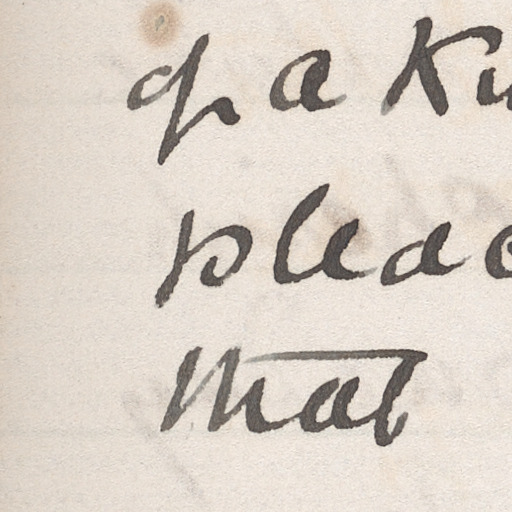 of a K
pleac
that